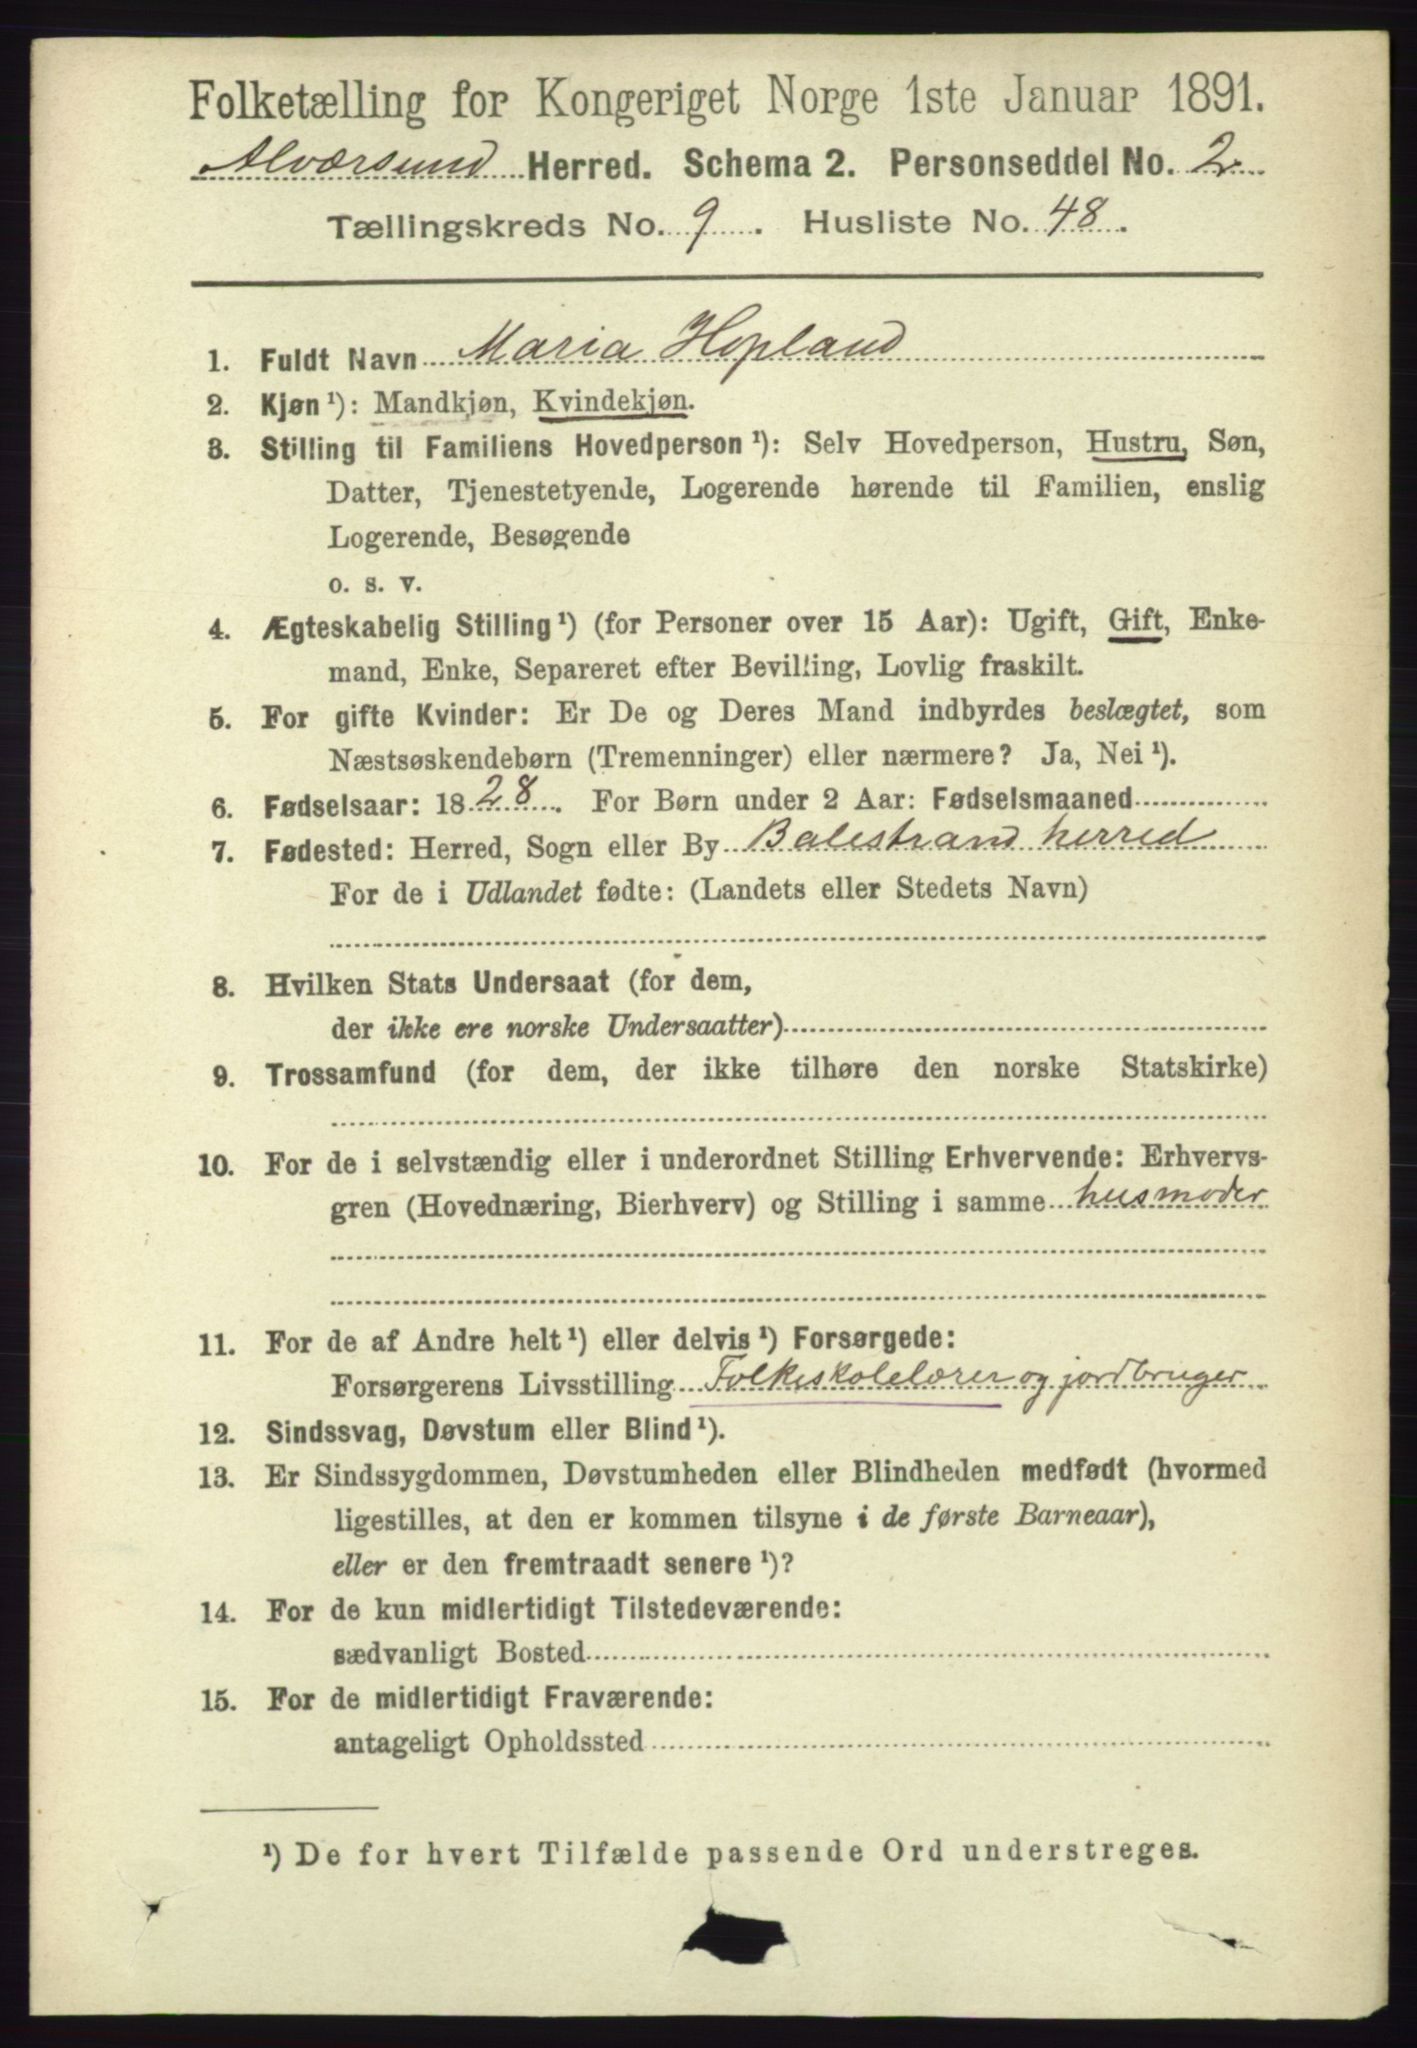 Folketælling for Kongeriget Norge 1ste Januar 1891.
Alværsund Herred. Schema 2. Personseddel No. 2.
Tællingskreds No. 9. Husliste No. 48.
1. Fuldt Navn Maria Hopland
2. Kjøn ¹): Mandkjøn, Kvindekjøn.
3. Stilling til Familiens Hovedperson ¹): Selv Hovedperson, Hustru, Søn,
Datter, Tjenestetyende, Logerende hørende til Familien, enslig
Logerende, Besøgende
o. s. v.
4. Ægteskabelig Stilling ¹) (for Personer over 15 Aar): Ugift, Gift, Enke-
mand, Enke, Separeret efter Bevilling, Lovlig fraskilt.
5. For gifte Kvinder: Er De og Deres Mand indbyrdes beslægtet, som
Næstsøskendebørn (Tremenninger) eller nærmere? Ja, Nei ¹).
6. Fødselsaar: 1828. For Børn under 2 Aar: Fødselsmaaned
7. Fødested: Herred, Sogn eller By Balestrand herred
For de i Udlandet fødte: (Landets eller Stedets Navn)
8. Hvilken Stats Undersaat (for dem,
der ikke ere norske Undersaatter)
9. Trossamfund (for dem, der ikke tilhøre den norske Statskirke)
10. For de i selvstændig eller i underordnet Stilling Erhvervende: Erhvervs-
gren (Hovednæring, Bierhverv) og Stilling i samme husmoder
11. For de af Andre helt ¹) eller delvis ¹) Forsørgede:
Forsørgerens Livsstilling Folkeskolelærer og jordbruger
12. Sindssvag, Døvstum eller Blind ¹).
13. Er Sindssygdommen, Døvstumheden eller Blindheden medfødt (hvormed
ligestilles, at den er kommen tilsyne i de første Barneaar),
eller er den fremtraadt senere ¹)?
14. For de kun midlertidigt Tilstedeværende:
sædvanligt Bosted
15. For de midlertidigt Fraværende:
antageligt Opholdssted
¹) De for hvert Tilfælde passende Ord understreges.